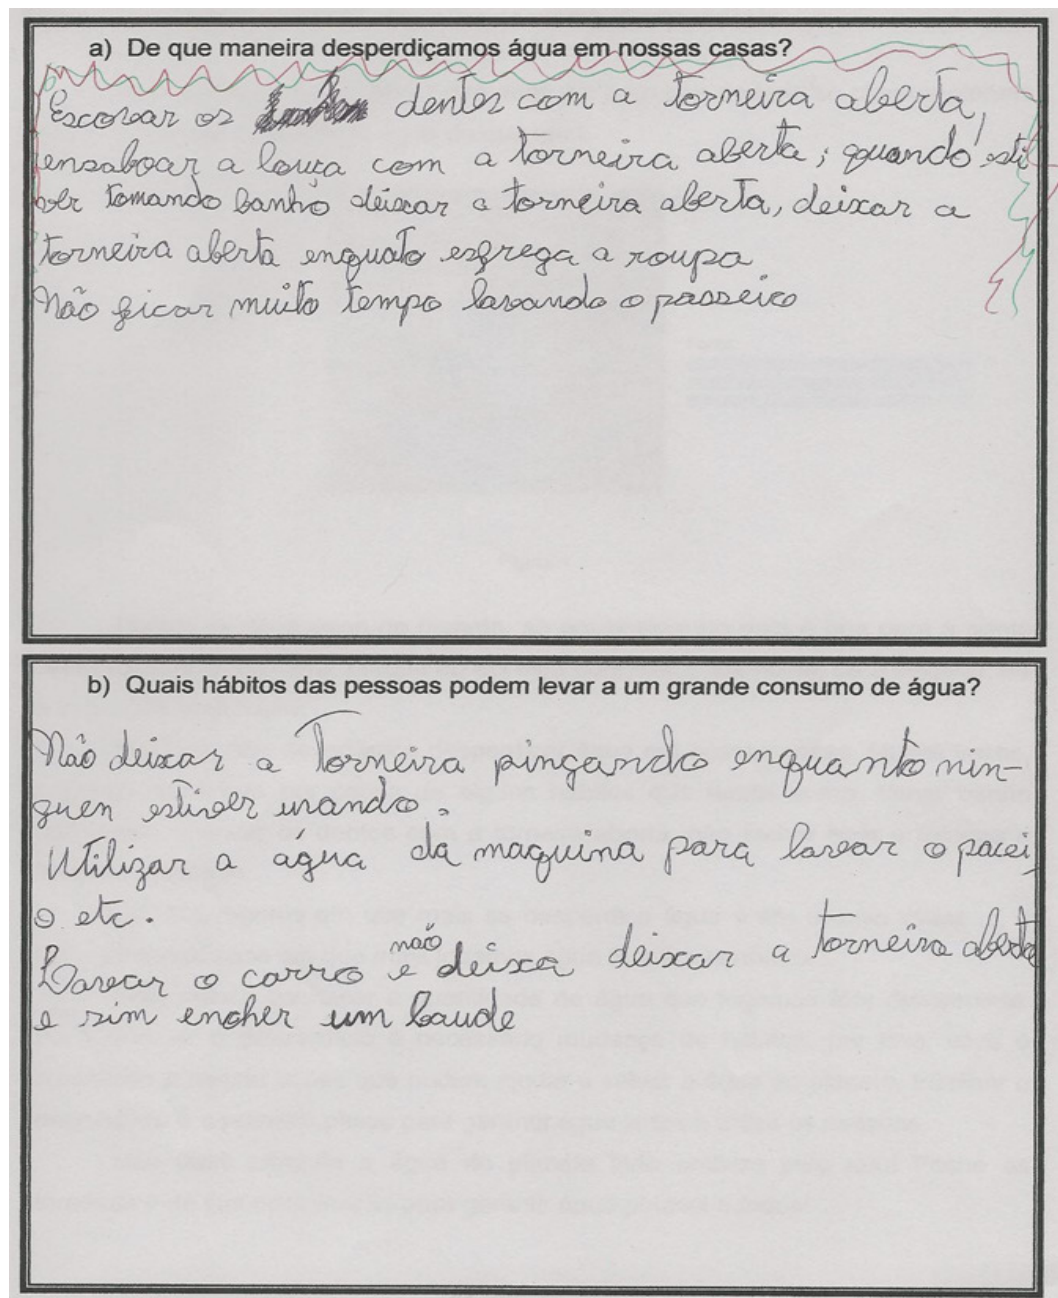 a) De que maneira desperdiçamos água em nossas casas?
Escovar os dentes com a torneira aberta,
ensaboar a louça com a torneira aberta; quando esti
ver tomando banho deixar a torneira aberta, deixar a
torneira aberta enquato esfrega a roupa.
Não ficar muito tempo lavando o passeio
b) Quais hábitos das pessoas podem levar a um grande consumo de água?
Não deixar a Torneira pingando enquanto nin-
guen estiver usando.
Utilizar a água da maquina para lavar o pacei
o etc.
Lavar o carro e não deixa deixar a torneira aberta
e sim encher um baude